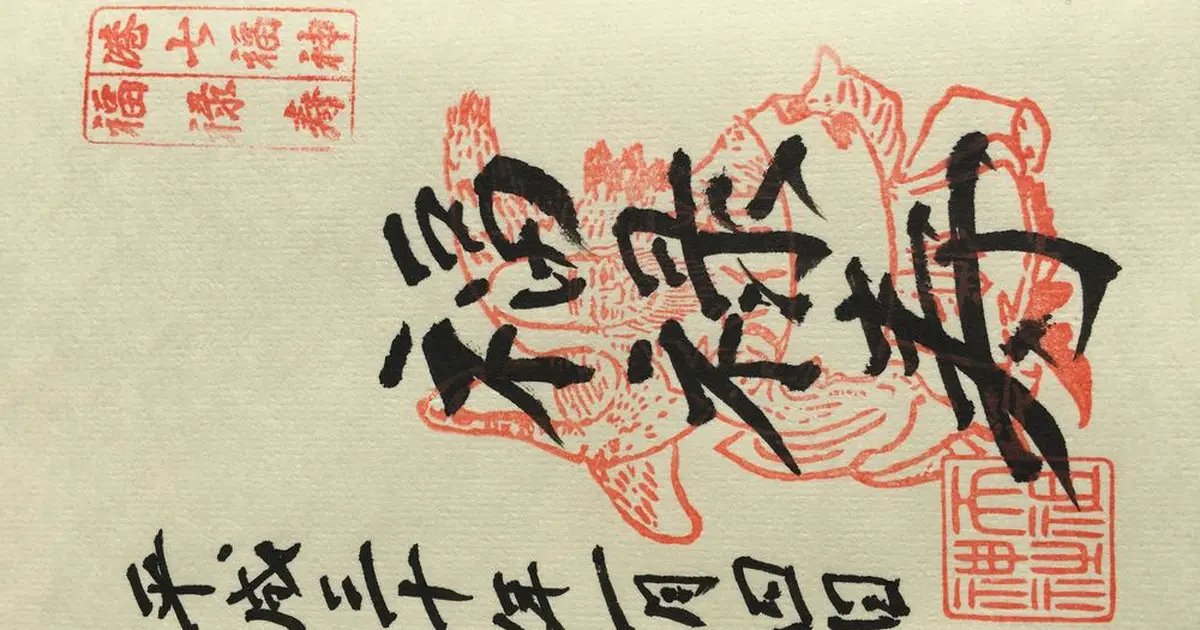 港七福神
福禄寿
福禄寿
平成三十年一月四日